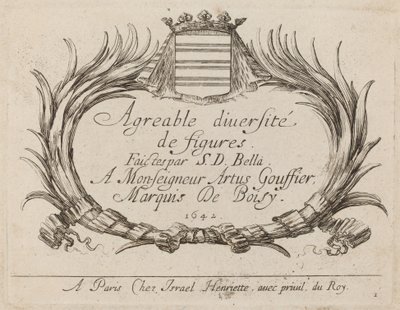 Agreable diuersité
de figures.
Faictes par S. D. Bella.
A Monseigneur Artus Gouffier,
Marquis De Boisy.
1642
A Paris Chez Israel Henriette, auec priuil. du Roy.
1